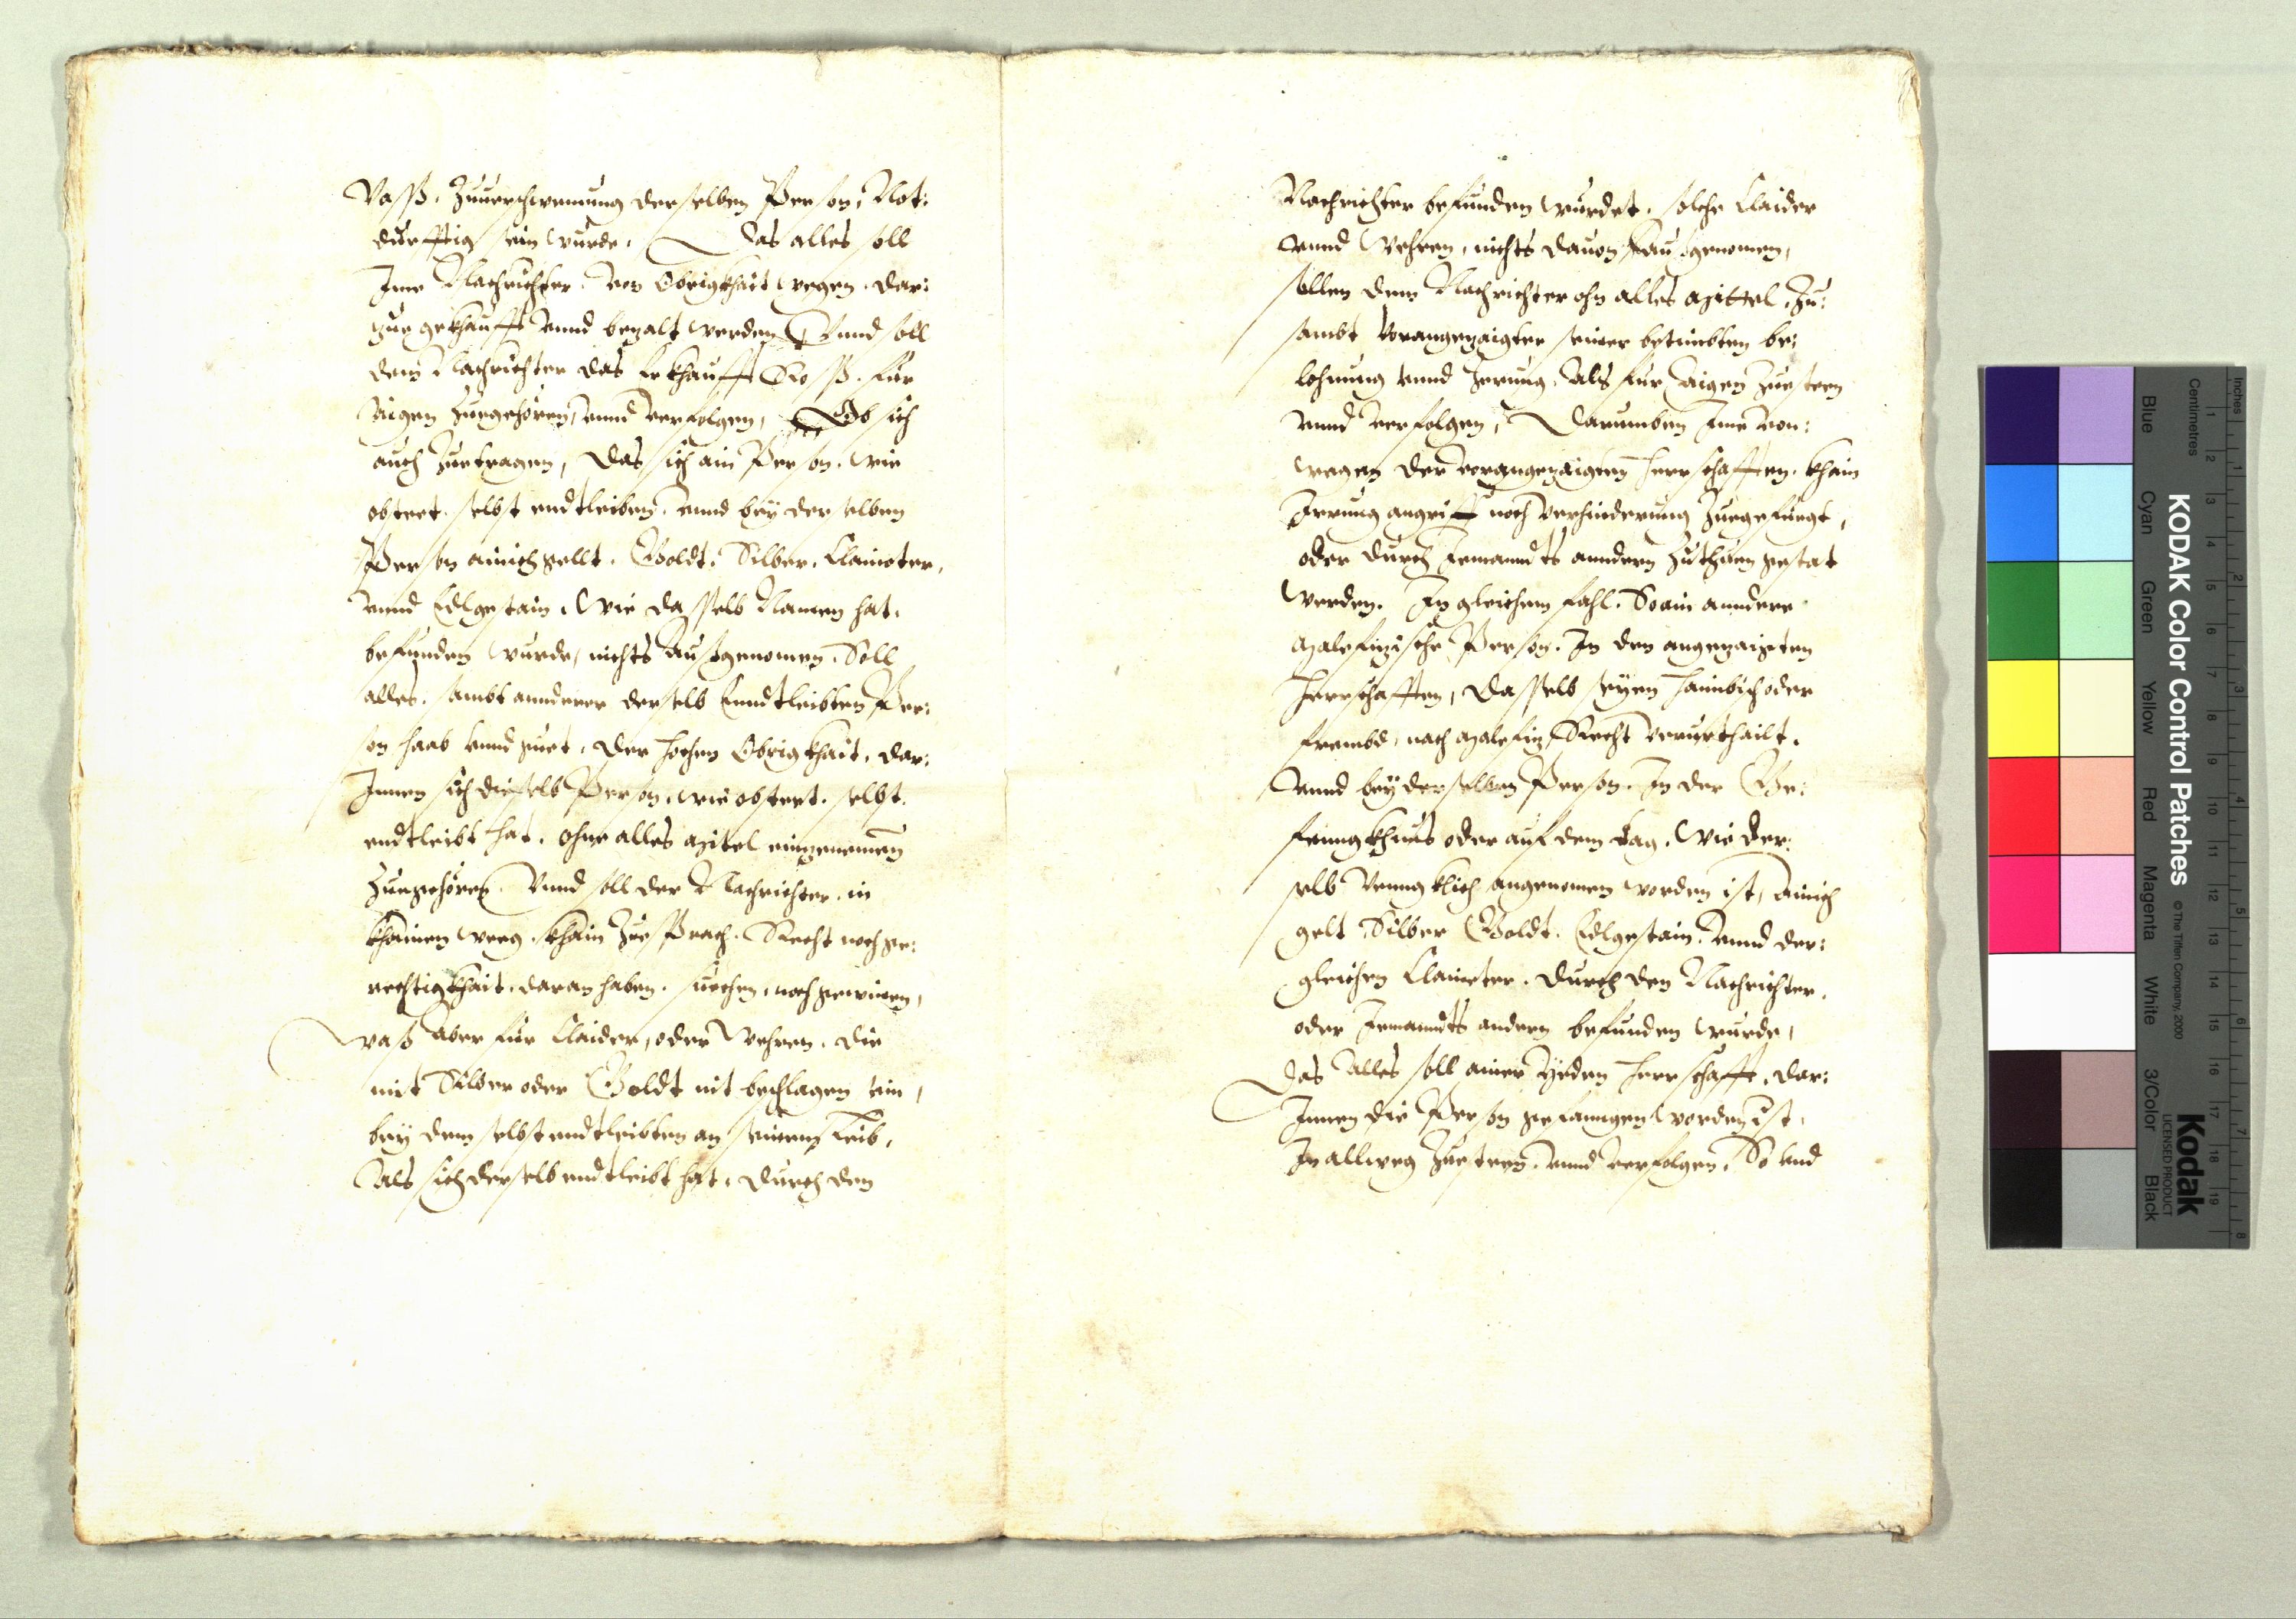 Vasß, Zuuerschwemung derselben Person, Not:
durfftig sein wurde, Das alles soll
Ime Nachrichter von Obrigkhait wegen, dar:
zue gekhaufft vnnd bezalt werden, Vnnd soll
dem Nachrichter das Erkhaufft Rosß, für
Aigen Zuegehören, vnnd veruolgen, Ob sich
auch Zuetragen, das sich ain Person, wie
obsteet, selbst endtleiben, vnnd bey derselben
Person ainich gellt, Goldt, Silber, Claineter,
vnnd Edlgestain, Wie dasselb Namen hat,
befunden wurde, nichts Außgenomen, Soll
alles, sambt annderer derselb Enndtleibten Per:
son haab vnnd guet, der hochen Obrigkhait, dar:
Innen sich dieselb Person, wie obsteet, selbst,
endtleibt hat, ohne alles mitel eingenomen
Zuegehören, Vnnd soll der Nachrichter, in
khainen weeg, khain Zuesprach, Recht noch ge:
rechtigkhait, daran haben, suechen, noch gewinen,
waß aber für Claider, oder Wehren, die
mit Silber oder Goldt nit beschlagen sein,
bey dem selbst endtleibten an seinem Leib,
Als sich derselb endtleibt hat, durch den
Nachrichter befunden wurdet, solche Claider
vnnd Wehren, nichts dauon Außgenomen,
sollen dem Nachrichter ohn alles mittel, Zu:
sambt vorangezaigter seiner bestimbten be:
lohnung vnnd Zerung, Als für Aigen Zuesteen
vnnd veruolgen, Darumben Ime von:
wegen der vorangezaigten Herrschafften, khain
Irrung angriff noch verhinderung Zuegefüegt,
oder durch Jemanndts anndern Zuthuen gestat
werden. In gleichem fahl, So ain anndere
malefizische Person, In den angezaigten
Herrschafften, dasselb seyen haimbisch oder
frembd, nach malefiz Recht verurthailt,
vnnd bey derselben Person, In der Ge:
fenngkhnus oder auf dem tag, Wie der:
selb venngklich angenomen worden ist, Ainich
gelt Silber Goldt, Edlgestain, vnnd der:
gleichen Claineter, durch den Nachrichter,
oder Jemanndts andern befunden wurde,
Das Alles soll ainer Yeden Herrschafft, dar:
Innen die Person gefanngen worden ist,
In allweg Zuesteen, vnnd veruolgen, So vnd